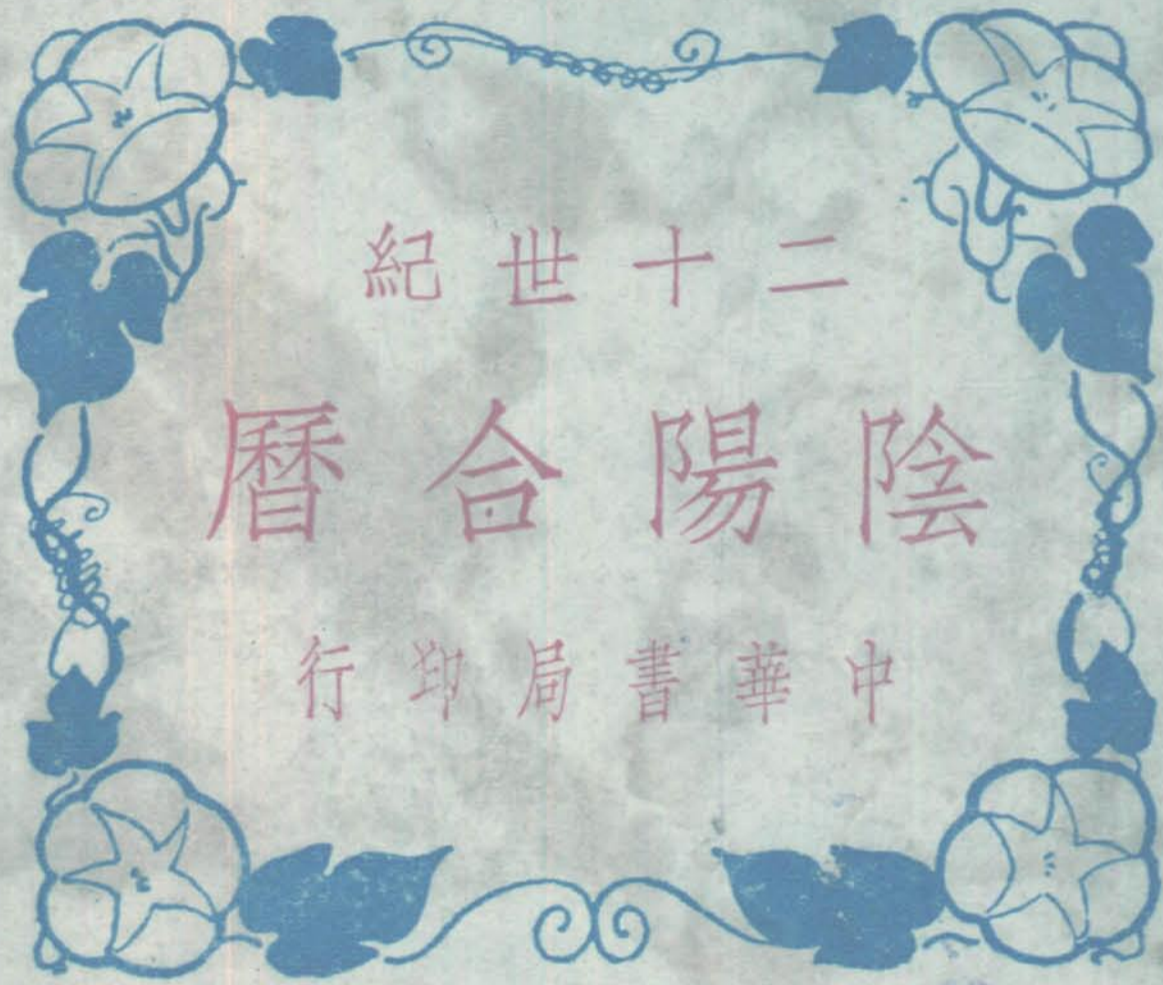 二十世紀
陰陽合曆
中華書局印行